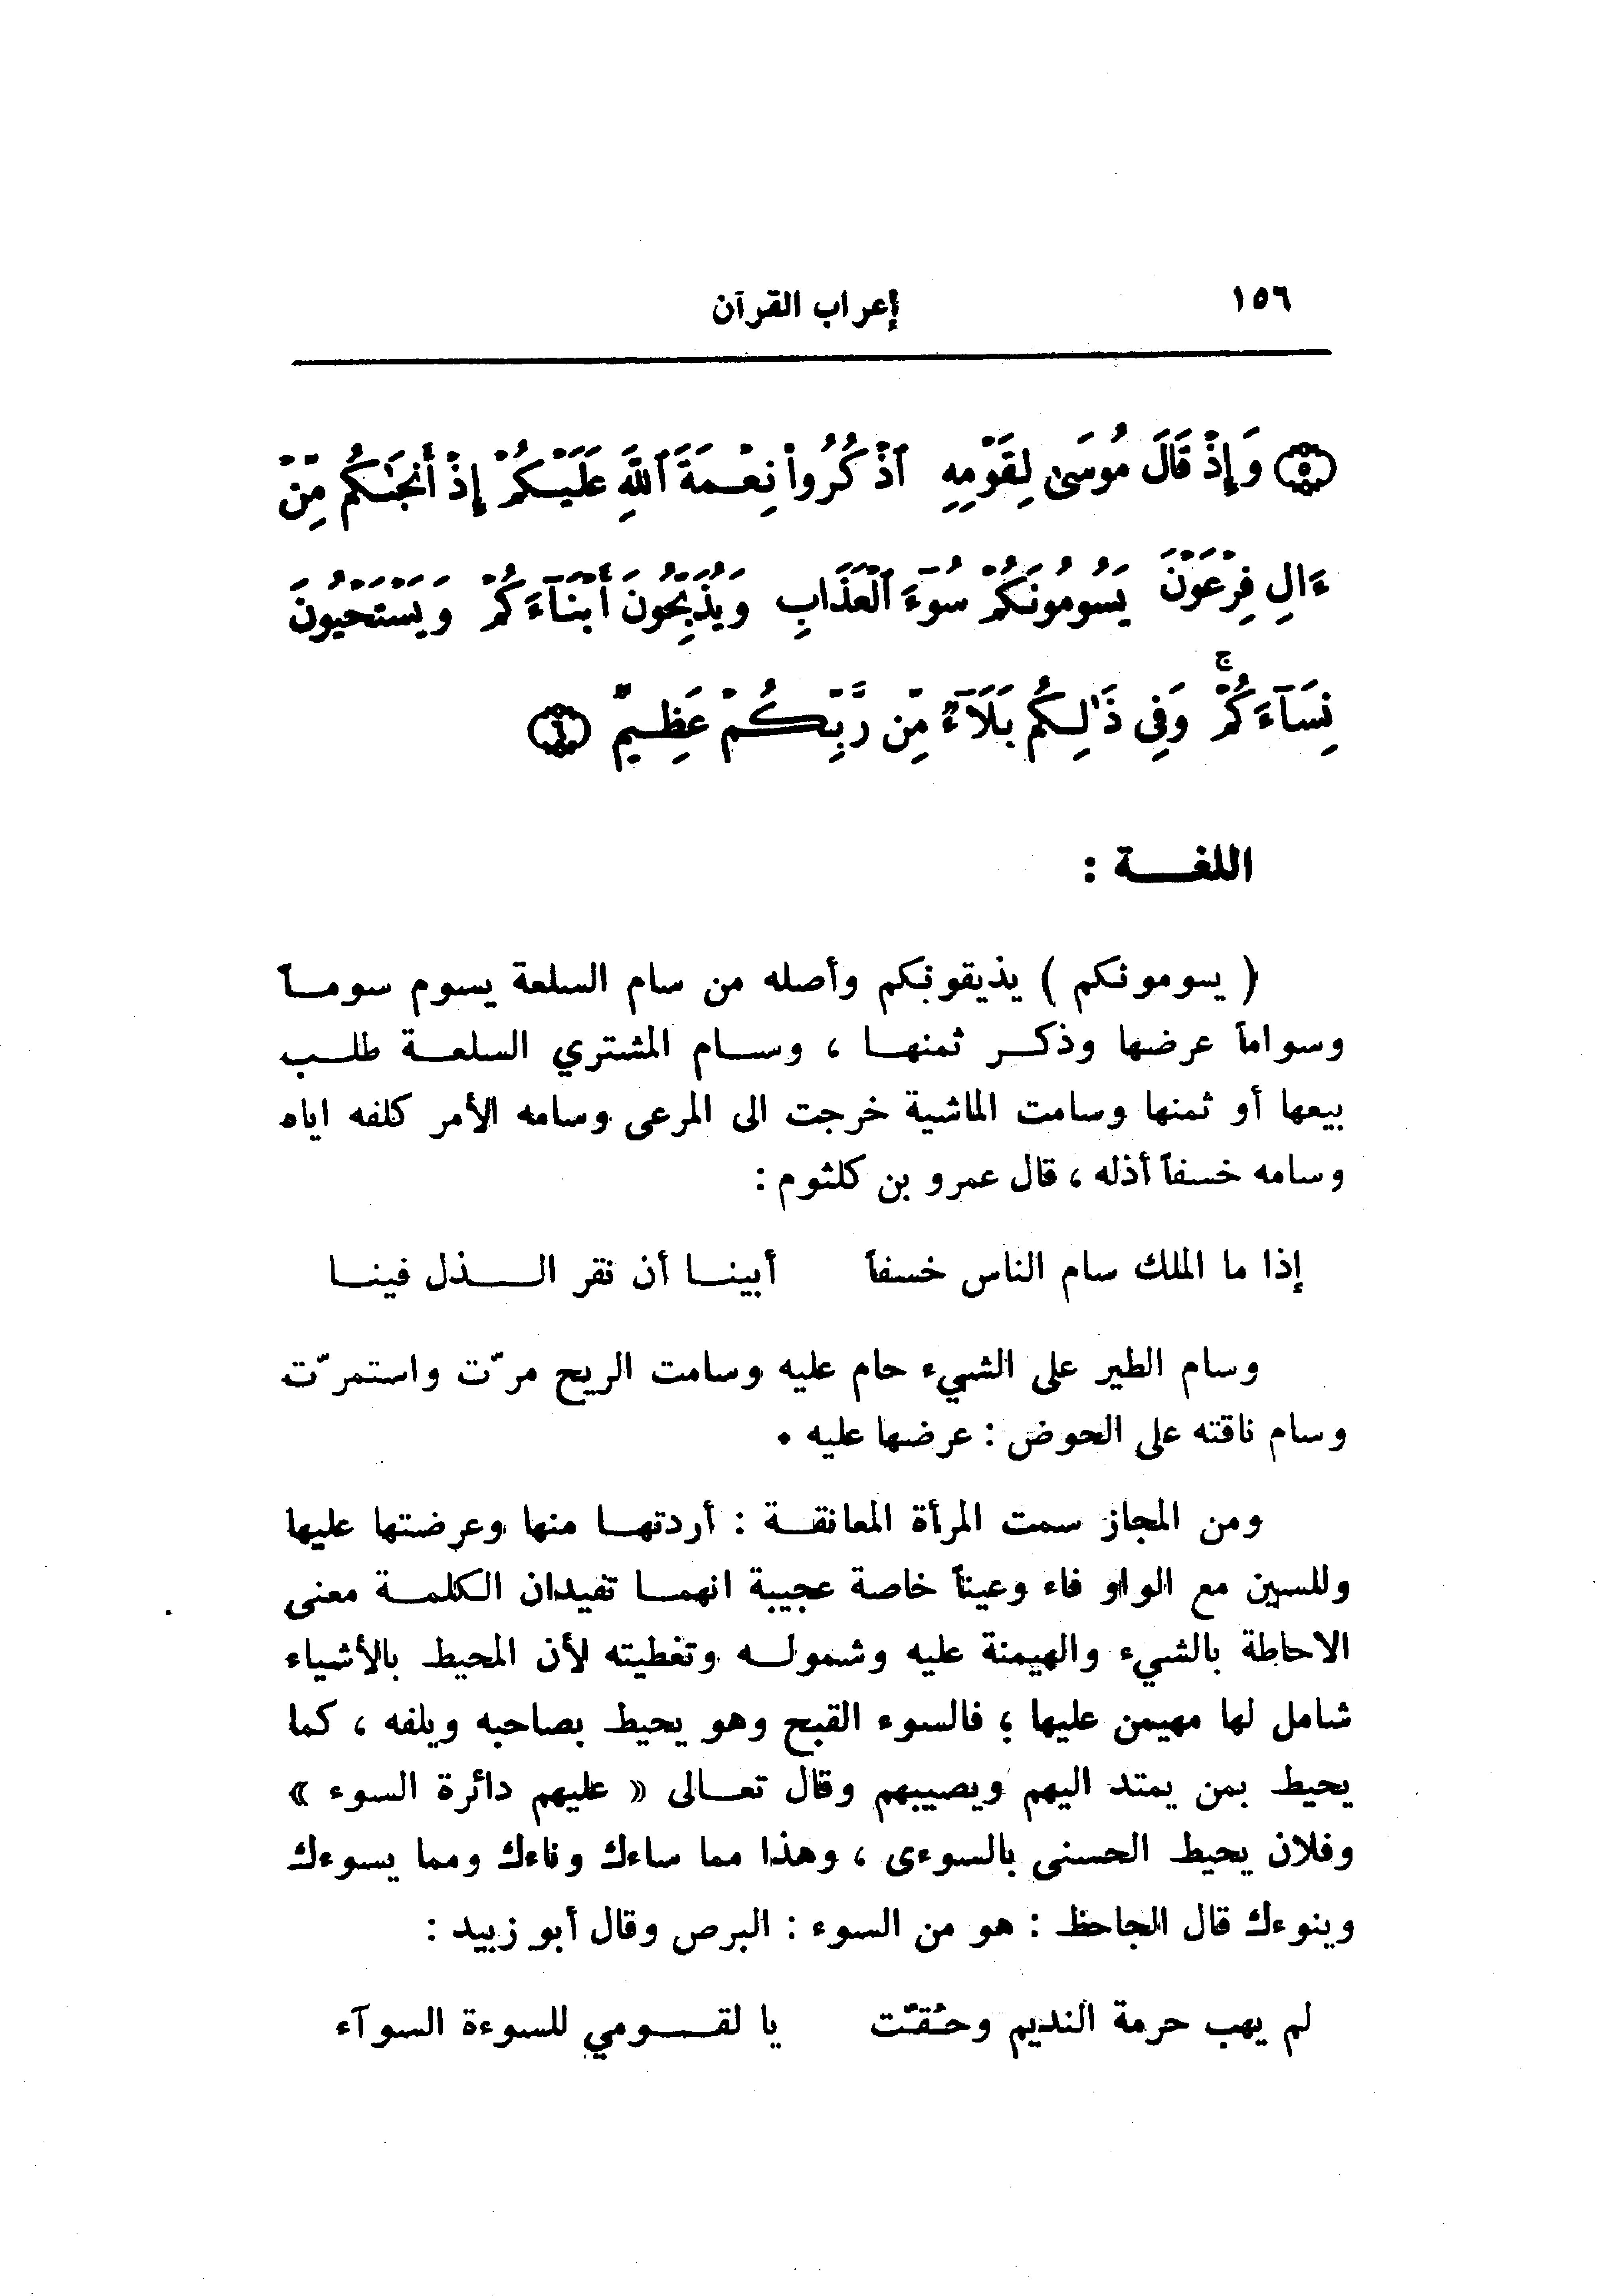 ١٥٦ إعراب القرآن
(٥) وَإِذْ قَالَ مُوسَىٰ لِقَوْمِهِ ٱذْكُرُوا۟ نِعْمَةَ ٱللَّهِ عَلَيْكُمْ إِذْ أَنجَىٰكُم مِّنْ
ءَالِ فِرْعَوْنَ يَسُومُونَكُمْ سُوٓءَ ٱلْعَذَابِ وَيُذَبِّحُونَ أَبْنَآءَكُمْ وَيَسْتَحْيُونَ
نِسَآءَكُمْ ۚ وَفِى ذَٰلِكُم بَلَآءٌ مِّن رَّبِّكُمْ عَظِيمٌ (٦)
اللغـــة :
( يسومونكم ) يذيقونكم وأصله من سام السلعة يسوم سومـاً
وسواماً عرضها وذكـر ثمنهـا ، وسـام المشتري السلعـة طلـب
بيعها أو ثمنها وسامت الماشية خرجت الى المرعى وسامه الأمر كلفه اياه
وسامه خسفاً أذله ، قال عمرو بن كلثوم :
إذا ما الملك سام الناس خسفاً أبينـا أن نقر الــذل فينـا
وسام الطير على الشيء حام عليه وسامت الريح مرّت واستمرّت
وسام ناقته على الحوض : عرضها عليه .
ومن المجاز سمت المرأة المعانقـة : أردتهـا منها وعرضتها عليها
وللسين مع الواو فاء وعيناً خاصة عجيبة انهمـا تفيدان الكلمـة معنى
الاحاطة بالشيء والهيمنة عليه وشمولـه وتغطيته لأن المحيط بالأشياء
شامل لها مهيمن عليها ؛ فالسوء القبح وهو يحيط بصاحبه ويلفه ، كما
يحيط بمن يمتد اليهم ويصيبهم وقال تعـالى « عليهم دائرة السوء »
وفلان يحيط الحسنى بالسوءى ، وهذا مما ساءك وناءك ومما يسوءك
وينوءك قال الجاحظ : هو من السوء : البرص وقال أبو زبيد :
لم يهب حرمة النديم وحُقّت يا لقـــومي للسوءة السوآء